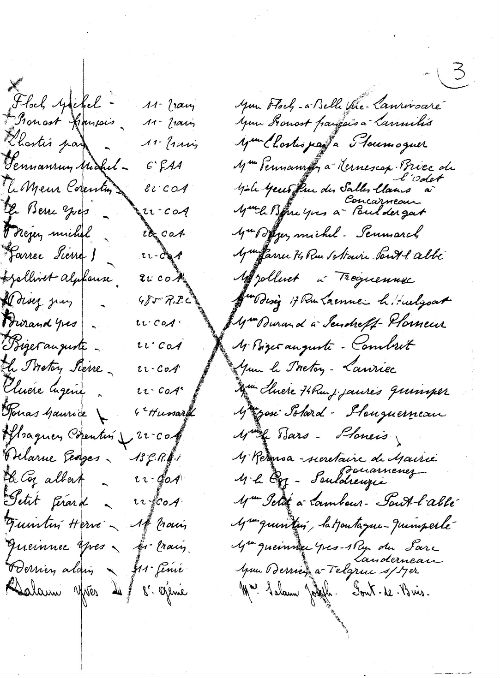 3
Floch Michel - 11e train Mme Floch - à Belle Vue - Lanrivoaré
Ronost françois - 11e train Mme Ronost françois à - Lannilis
Lhostis jean 11e train Mme Lhostis jean à Ploumoguer
Pennanrun Michel - 6e GAA Mme Pennanrun à Kernescop. Briec de l'Odet
le Meur Corentin - 22e COA Rue des Salles Ilans à Concarneau
le Berre Yves - 22e COA Mme le Berre Yves à Pouldergat
Brezen michel - 22e COA Mme Brezen michel - Penmarch
Garrec Pierre 22e COA Mme Garrec 74 Rue Pont l'abbé
jollivet alphonse 22e COA M. jollivet à Tréguennec
Bisij jean 48e R.I.C Mme Bisij 17 Rue Laennec le Huelgoat
Durand Yves - 22e COA Mme Durand à Plomeur
Bizet auguste - 22e COA M. Bizet auguste - Combrit
le Breton Pierre - 22e COA Mme le Breton - Lanriec
Cluère Eugène 22e COA Mme Cluère 74 Rue j. jaurès quimper
Tonas Maurice 4e Hussard Mme josé Potard - Plouguerneau
Corentin 22e COA Mme le Bars - Ploneis
Delarue Georges - M. Kerma - secretaire de Mairie Douarnenez
le Coz albert - 22e COA M. le Coz - Pouldreuzic
Petit Gérard - 22e COA Mme Petit à Lambour - Pont l'abbé
quintin Hervé - 11e train Mme quintin, la Montagne - Quimperlé
gueinnec Yves - 11e train Mme gueinnec Yves - Rue du Parc Landerneau
Derrien alain - 11e Génie Mme Derrien à Telgruc s/Mer
Salaun Yves 6e génie Mme Salaun Joseph. Pont-de-Buis.